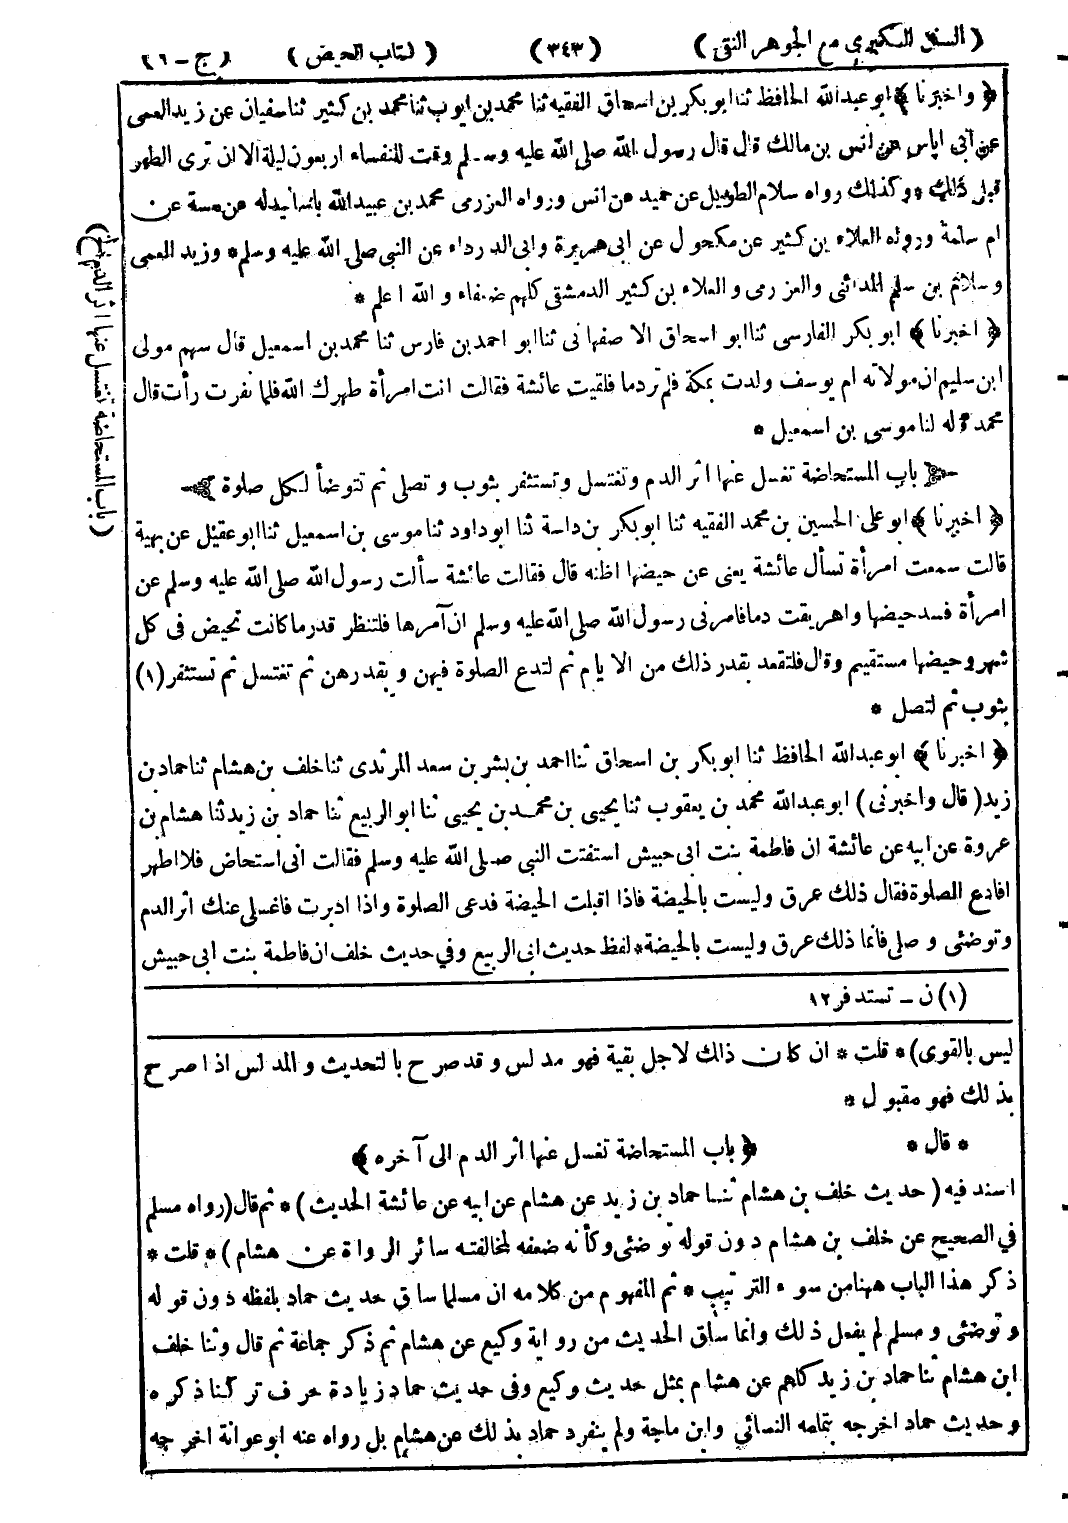 (السنن الكبرى مع الجوهر النقى) (٣٤٣) (كتاب الحيض) (ج-١)
﴿واخبرنا﴾ ابو عبدالله الحافظ ثنا ابو بكر بن اسحاق الفقيه ثنا محمد بن ايوب ثنا محمد بن كثير ثنا سفيان عن زيد العمى
عن ابى اياس عن انس بن مالك قال قال رسول الله صلى الله عليه وسلم وقت للنفساء اربعون ليلة الا ان ترى الطهر
قبل ذلك * وكذلك رواه سلام الطويل عن حميد عن انس ورواه العزرمى محمد بن عبيدالله باسانيد له عن مسة عن
ام سلمة ورواه العلاء بن كثير عن مكحول عن ابى هريرة وابى الدرداء عن النبى صلى الله عليه وسلم * وزيد العمى
وسلام بن سلم المدائنى والعزرمى والعلاء بن كثير الدمشقى كلهم ضعفاء والله اعلم *
﴿اخبرنا﴾ ابو بكر الفارسى ثنا ابو اسحاق الاصفهانى ثنا ابو احمد بن فارس ثنا محمد بن اسمعيل قال سهم مولى
ابن سليم ان مولاته ام يوسف ولدت بمكة فلم تر دما فلقيت عائشة فقالت انت امرأة طهرك الله فلما نفرت رأت قال
محمد قاله لنا موسى بن اسمعيل *
باب المستحاضة تغسل عنها اثر الدم وتغتسل وتستثفر بثوب وتصلى ثم تتوضأ لكل صلوة
﴿اخبرنا﴾ ابو على الحسين بن محمد الفقيه ثنا ابو بكر بن داسة ثنا ابو داود ثنا موسى بن اسمعيل ثنا ابو عقيل عن بهية
قالت سمعت امرأة تسأل عائشة يعنى عن حيضها اظنه قال فقالت عائشة سألت رسول الله صلى الله عليه وسلم عن
امرأة فسد حيضها واهريقت دما فامرنى رسول الله صلى الله عليه وسلم ان آمرها فلتنظر قدر ما كانت تحيض فى كل
شهر وحيضها مستقيم وقال فلتقعد بقدر ذلك من الايام ثم لتدع الصلوة فيهن وبقدرهن ثم تغتسل ثم تستثفر (١)
بثوب ثم لتصل *
﴿اخبرنا﴾ ابو عبدالله الحافظ ثنا ابو بكر بن اسحاق ثنا احمد بن بشر بن سعد المرثدى ثنا خلف بن هشام ثنا حماد بن
زيد (قال واخبرنى) ابو عبدالله محمد بن يعقوب ثنا يحيى بن محمد بن يحيى ثنا ابو الربيع ثنا حماد بن زيد ثنا هشام بن
عروة عن ابيه عن عائشة ان فاطمة بنت ابى حبيش استفتت النبى صلى الله عليه وسلم فقالت انى استحاض فلا اطهر
افادع الصلوة فقال ذلك عرق وليست بالحيضة فاذا اقبلت الحيضة فدعى الصلوة واذا ادبرت فاغسلى عنك اثر الدم
وتوضئى وصلى فانما ذلك عرق وليست بالحيضة * لفظ حديث ابى الربيع وفي حديث خلف ان فاطمة بنت ابى حبيش
(١) ن - تستدفر ١٢
ليس بالقوى) * قلت * ان كان ذلك لاجل بقية فهو مدلس وقد صرح بالتحديث والمدلس اذا صرح
بذلك فهو مقبول *
* قال * ﴿باب المستحاضة تغسل عنها اثر الدم الى آخره﴾
اسند فيه (حديث خلف بن هشام ثنا حماد بن زيد عن هشام عن ابيه عن عائشة الحديث) * ثم قال (رواه مسلم
في الصحيح عن خلف بن هشام دون قوله توضئى وكأنه ضعفه لمخالفته سائر الرواة عن هشام) * قلت *
ذكر هذا الباب ههنا من سوء الترتيب * ثم المفهوم من كلامه ان مسلما ساق حديث حماد بلفظه دون قوله
وتوضئى ومسلم لم يفعل ذلك وانما ساق الحديث من رواية وكيع عن هشام ثم ذكر جماعة ثم قال وثنا خلف
ابن هشام ثنا حماد بن زيد كلهم عن هشام بمثل حديث وكيع وفى حديث حماد زيادة حرف تركنا ذكره
وحديث حماد اخرجه بتمامه النسائي وابن ماجة ولم ينفرد حماد بذلك عن هشام بل رواه عنه ابو عوانة اخرجه
(باب المستحاضة تغتسل عنها اثر الدم الخ)